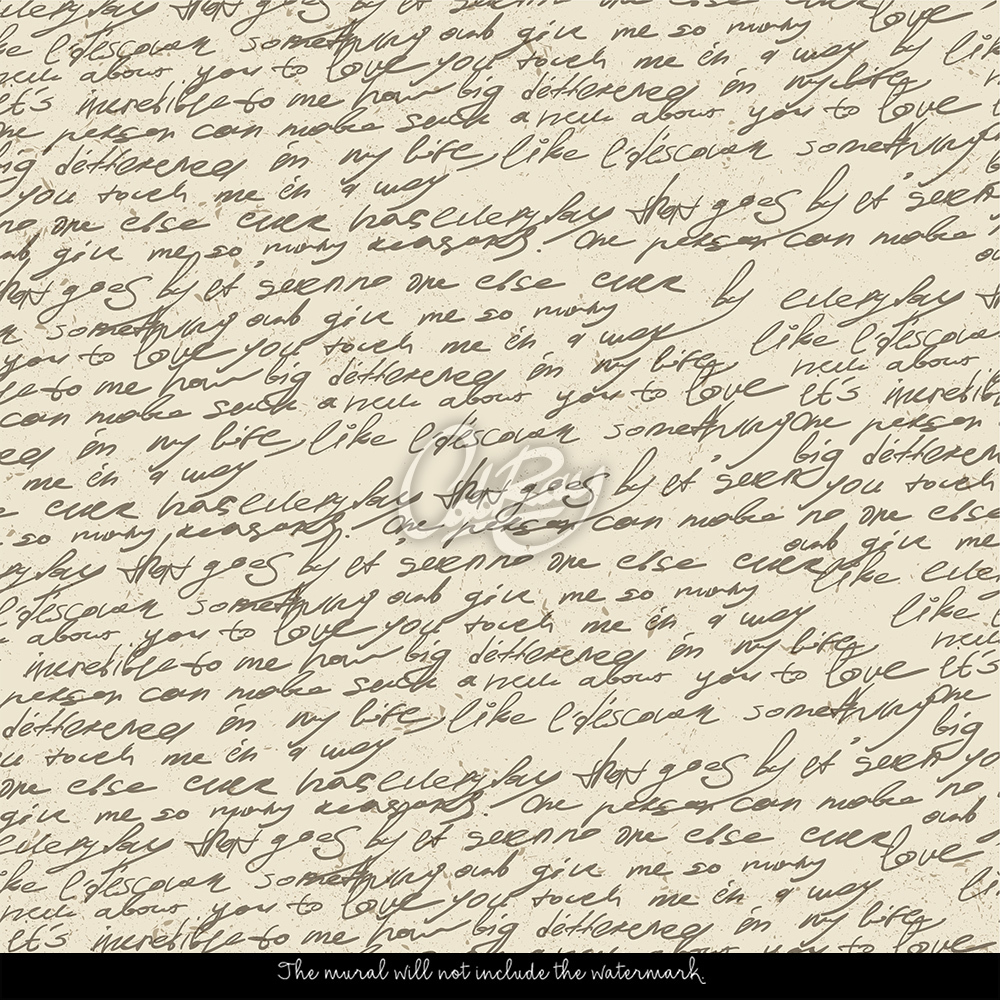 that goes by it' seen no one else ever
like I discover something and give me so many love
about you to love you touch me in a way by like
It's incredible to me how big detterened in my life
one person can make such a about you to love
big detterened in my life, like I discover something
you touch me in a way
no one else ever has everyday that goes by it' seen
and give me so many reasons. One person can make
that goes by it' seen no one else ever by everyday
something and give me so many
you to love you touch me in a way like I discover
to me how big detterened in my life about
can make such a about you to love It's incredible
in my life, like I discover something One person
me in a way big
ever has everyday that goes by it' seen you touch
so many reasons. One person can make no one else
everyday that goes by it' seen no one else ever and give me
I discover something and give me so many like
about you to love you touch me in a way like
incredible to me how big detterened in my life
person can make such a about you to love It's
detterened in my life, like I discover something One
touch me in a way big
one else ever has everyday that goes by it' seen
give me so many reasons. One person can make no
everyday that goes by it' seen no one else ever and
like I discover something and give me so many love
about you to love you touch me in a way
It's incredible to me how big detterened in my life
OhBoy
The mural will not include the watermark.